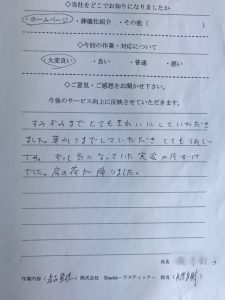 ◇当社をどこでお知りになりましたか
・ホームページ ・葬儀社紹介 ・その他( )
◇今回の作業・対応について
・大変良い ・良い ・普通 ・悪い
◇ご意見・ご感想をお聞かせ下さい。
今後のサービス向上に反映させていただきます。
すみずみまでとてもきれいにしていただき
ました。草刈りまでしていただきとてもうれしい
です。ずっと気になっていた実家の片付け
でした。肩の荷が降りました。
氏名
作業内容( )株式会社 Rustic-ラスティック- 担当( )